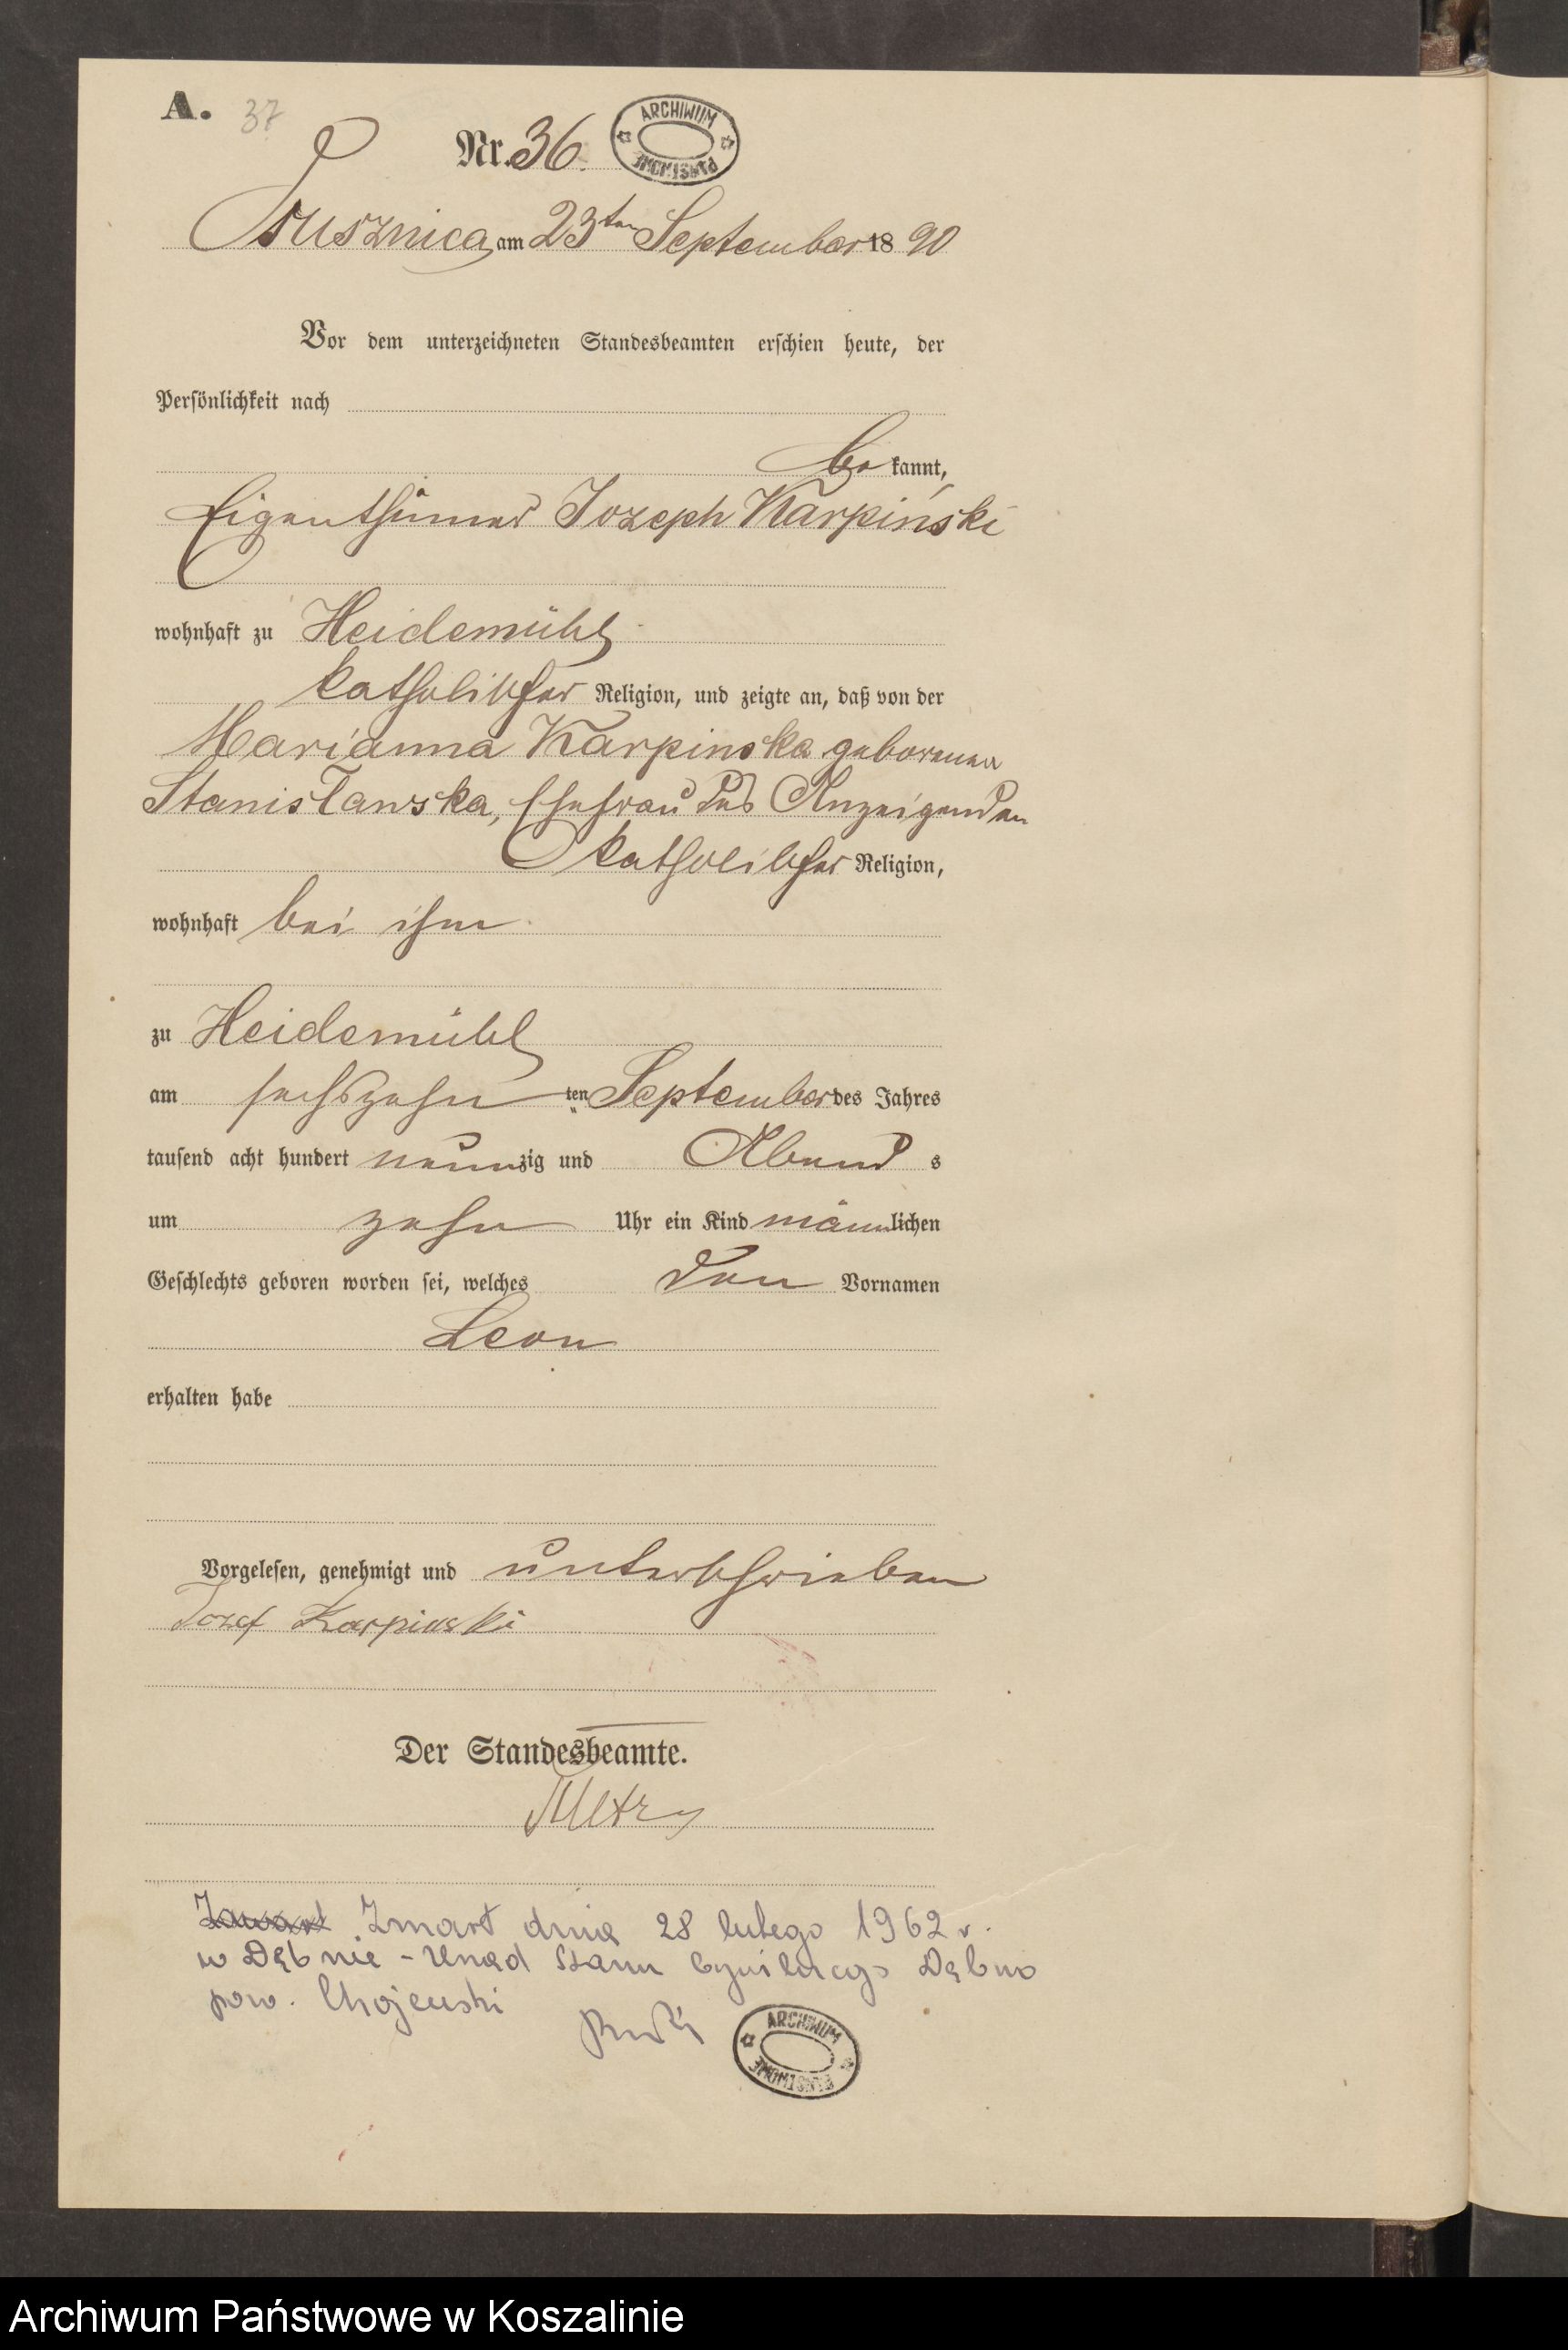 A. 37
Nr. 36.
ARCHIWUM PAŃSTWOWE
Osusznica, am 23ten September 1890
Vor dem unterzeichneten Standesbeamten erschien heute, der
Persönlichkeit nach
bekannt,
Eigenthümer Jozeph Karpiński
wohnhaft zu Heidemühl
katholischer Religion, und zeigte an, daß von der
Marianna Karpinska geborenen
Stanisławska, Ehefrau des Anzeigenden
katholischer Religion,
wohnhaft bei ihm
zu Heidemühl
am sechszehn ten September des Jahres
tausend acht hundert neunzig und Abend s
um zehn Uhr ein Kind männlichen
Geschlechts geboren worden sei, welches den Vornamen
Leon
erhalten habe
Vorgelesen, genehmigt und unterschrieben
Jozef Karpinski
Der Standesbeamte.
Zmarł dnia 28 lutego 1962 r.
w Dębnie - Urząd Stanu Cywilnego Dębno
pow. Chojeński
ARCHIWUM PAŃSTWOWE
Archiwum Państwowe w Koszalinie